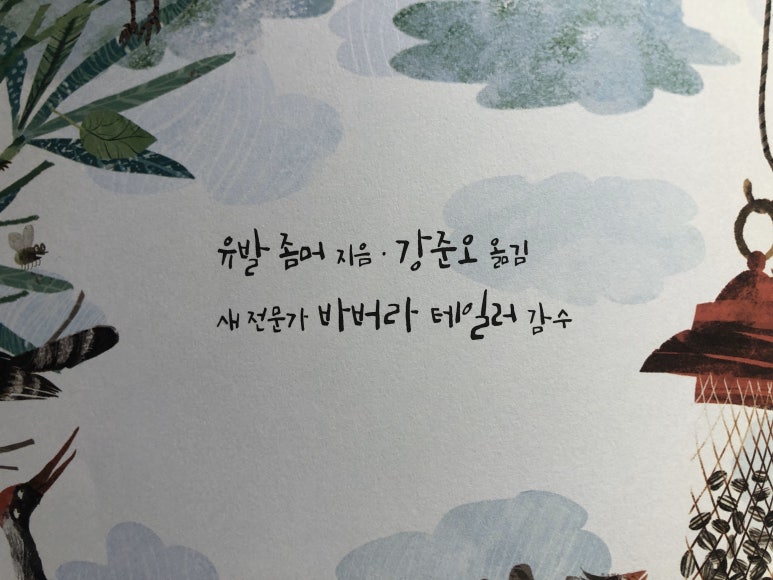 유발 좀머 지음 · 강준오 옮김
새 전문가 바버라 테일러 감수